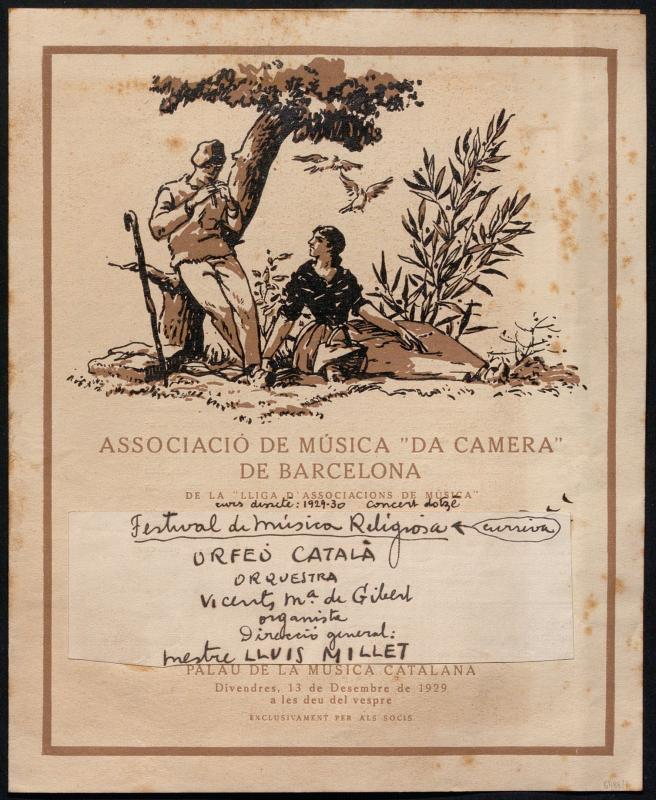 ASSOCIACIÓ DE MÚSICA "DA CAMERA"
DE BARCELONA
DE LA "LLIGA D'ASSOCIACIONS DE MÚSICA"
curs dissetè: 1929-30 concert dotzè
Festival de Música Religiosa ← cursiva
ORFEÓ CATALÀ
ORQUESTRA
Vicents Mª de Gibert
organista
Direcció general:
mestre LLUIS MILLET
PALAU DE LA MÚSICA CATALANA
Divendres, 13 de Desembre de 1929
a les deu del vespre
EXCLUSIVAMENT PER ALS SOCIS